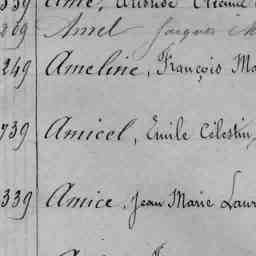 Amel Jacques
249 Ameline, François Ma
739 Amicel, Emile Célestin,
339 Amice, Jean Marie Laur